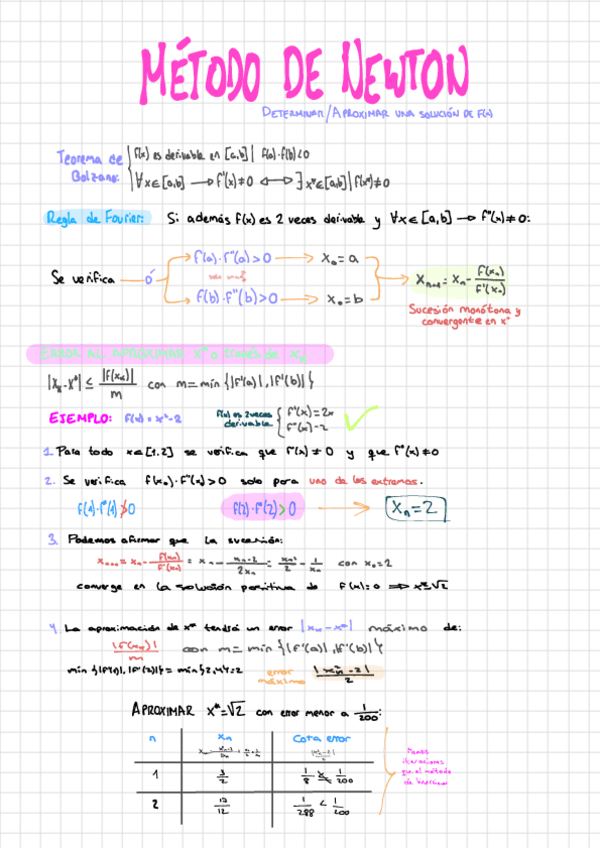 MÉTODO DE NEWTON
DETERMINAR/APROXIMAR UNA SOLUCIÓN DE F(x)
Teorema de Bolzano:
f(x) es derivable en [a,b] | f(a)·f(b)<0
∀x∈[a,b] → f'(x)≠0 ↔ ∃ x*∈[a,b] | f(x*)≠0
Regla de Fourier: Si además f(x) es 2 veces derivable y ∀x∈[a,b] → f''(x)≠0:
f(a)·f''(a)>0 → x₀=a
Se verifica ó
f(b)·f''(b)>0 → x₀=b
xₙ₊₁ = xₙ - f(xₙ)/f'(xₙ)
Sucesión monótona y
convergente en x*
ERROR AL APROXIMAR x* a través de xₙ
|xₙ-x*| ≤ |f(xₙ)|/m con m=min{|f'(a)|,|f'(b)|}
EJEMPLO: f(x)=x²-2
f(x) es 2 veces
derivable
f'(x)=2x
f''(x)=2
1. Para todo x∈[1,2] se verifica que f'(x)≠0 y que f''(x)≠0
2. Se verifica f(x₀)·f''(x)>0 solo para uno de los extremos.
f(1)·f''(1)≯0 f(2)·f''(2)>0 → xₙ=2
3. Podemos afirmar que la sucesión:
xₙ₊₁ = xₙ - f(xₙ)/f'(xₙ) = xₙ - xₙ-2/2xₙ = xₙ²/2 - 1/xₙ con x₀=2
converge en la solución positiva de f(x)=0 ⟹ x*=√2
4. La aproximación de x* tendrá un error |xₙ-x*| máximo de:
|f(xₙ)|/m con m=min{|f'(a)|,|f'(b)|}
min{|f'(1)|,|f'(2)|}=min{2,4}=2
error
máximo
|xₙ²-2|/2
APROXIMAR x*=√2 con error menor a 1/200:
n xₙ Cota error
1 3/2 1/8 ≮ 1/200
2 17/12 1/288 < 1/200
Menos
iteraciones
que el método
de